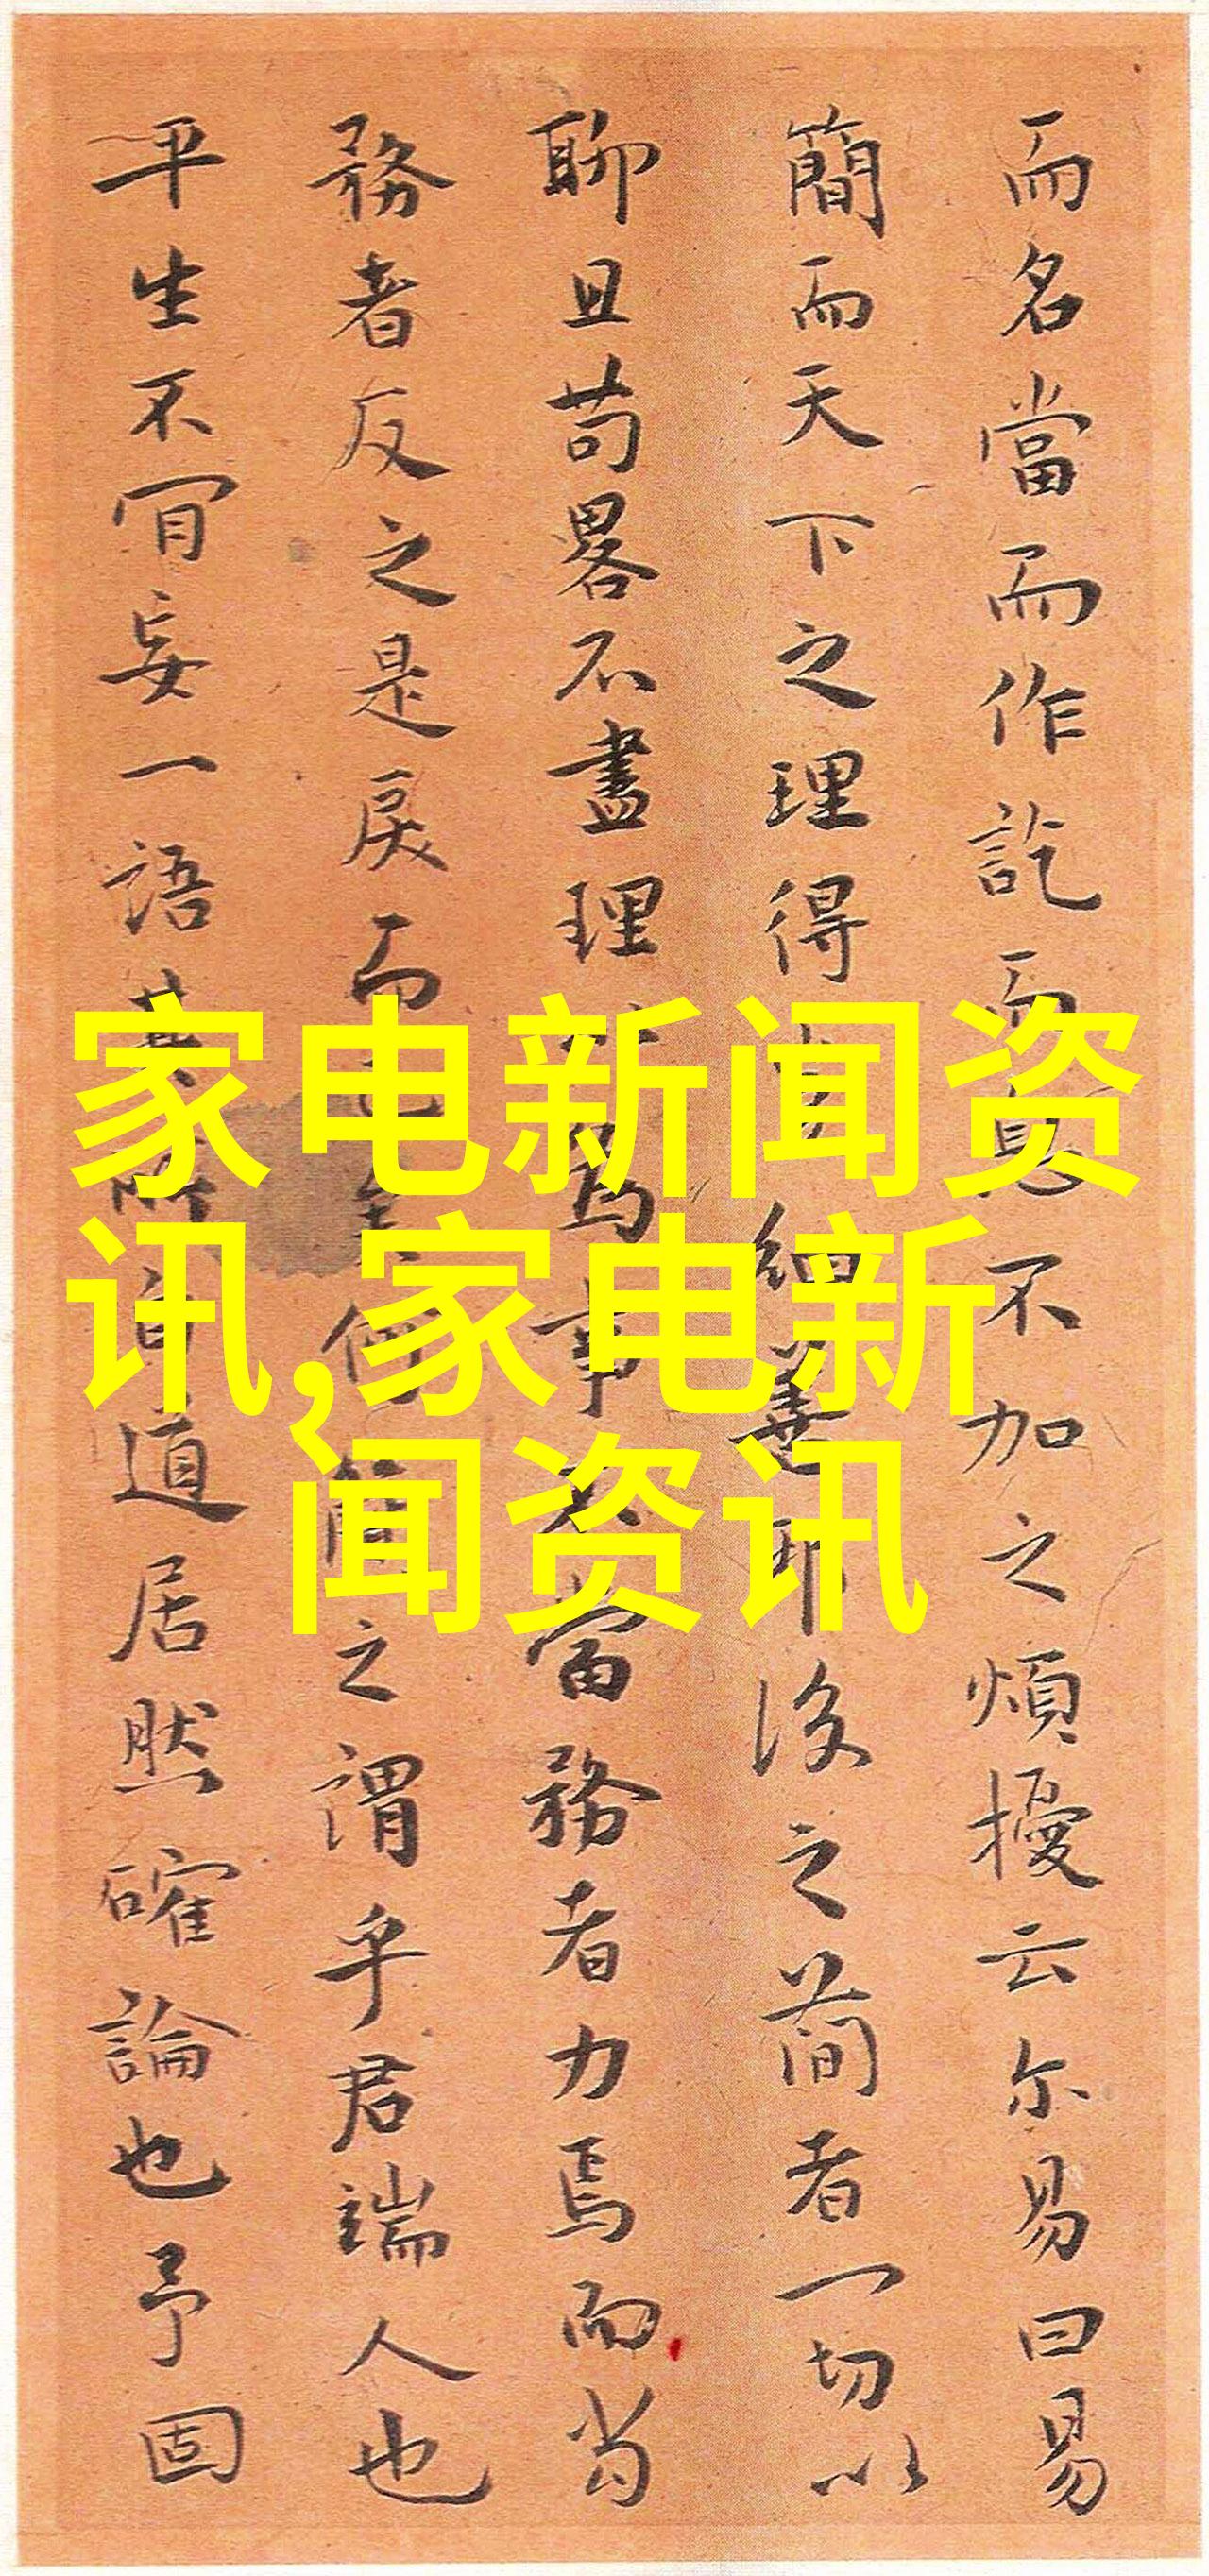 而名當而作訖而不加之煩擾云尔易曰易
簡而天下之理得細是耶後之簡者一切以
聊且苟畧不盡理為事當務者力焉而当
務者反之是戾而何簡之謂乎君端人也
平生不肎妄一語道居然確論也予固
家电新闻资
讯,家电新
闻资讯